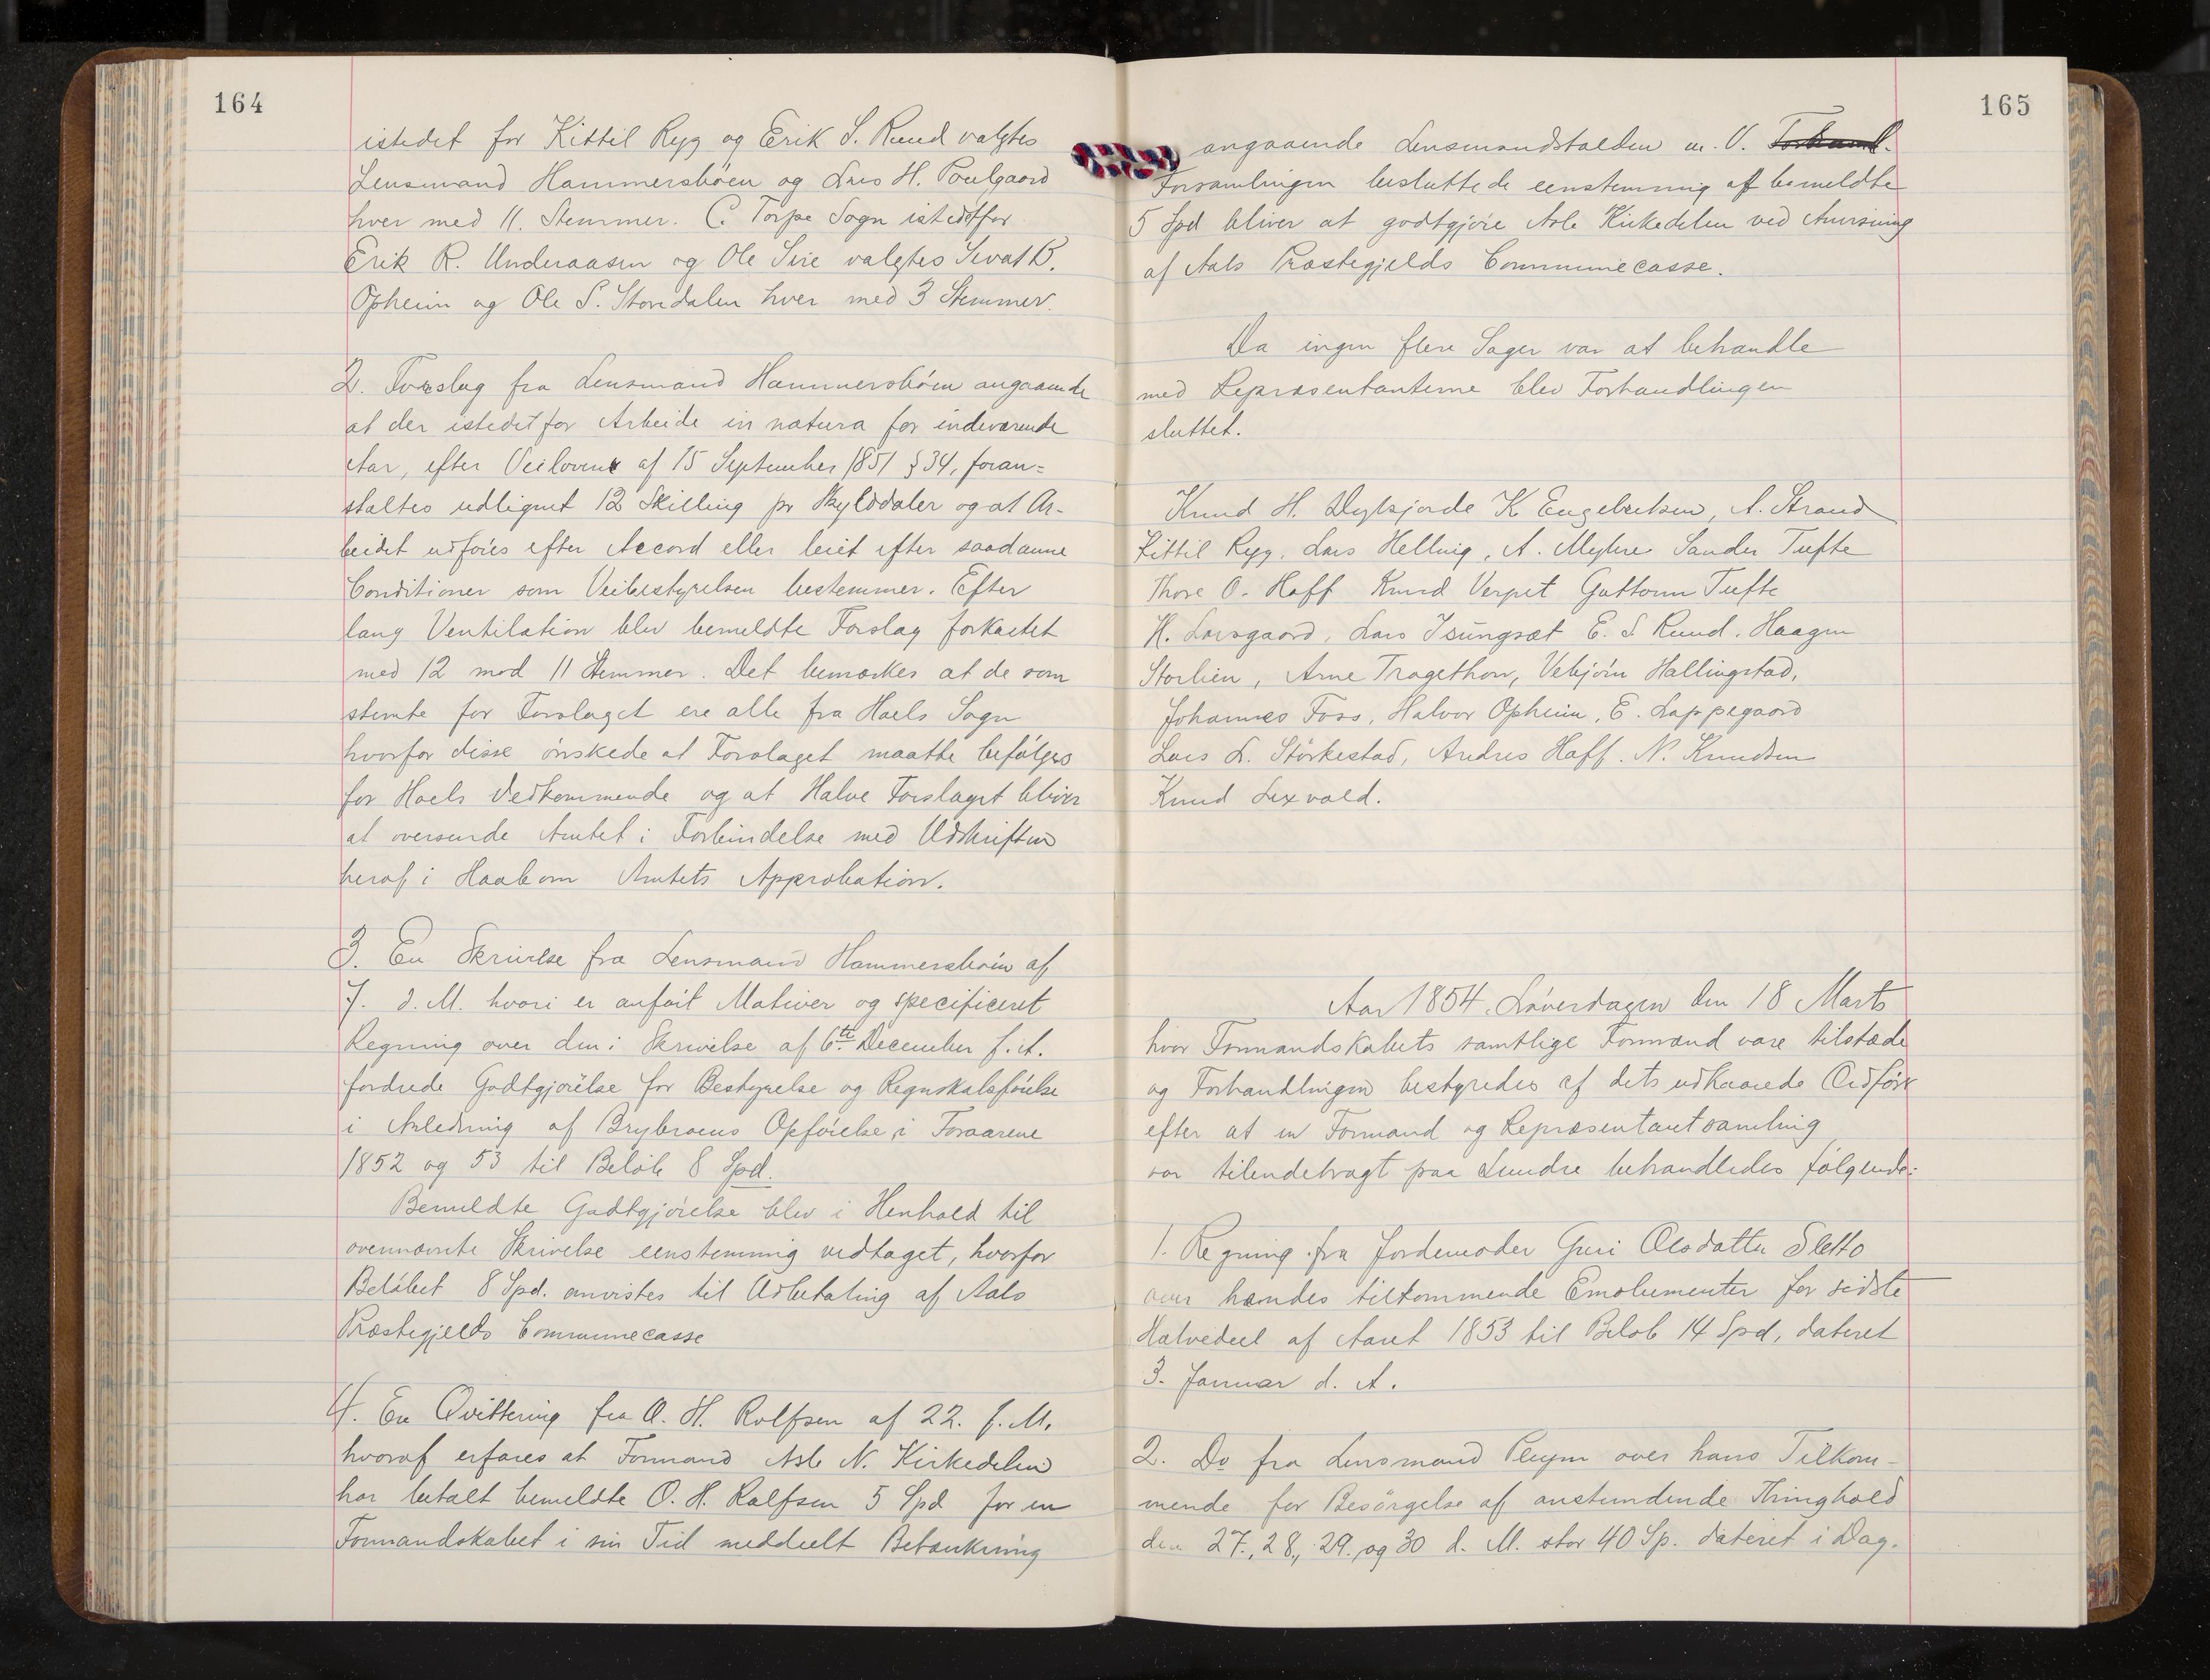 164
istedet for Kittil Ryg og Erik S. Ruud valgtes
Lensmand Hammersbøen og Lars H. Poulgaard
hver med 11. Stemmer. C. Torpe Sogn istedetfor
Erik R. Underaasen og Ole Sire valgtes Sevat B.
Opheim og Ole S. Storedalen hver med 3 Stemmer.
2. Forslag fra Lensmand Hammersbøen angaaende
at der istedetfor Arbeide in natura for indeværende
Aar, efter Veiloven af 15 September 1851 § 34, foran=
staltes udlignet 12 Skilling pr Skylddaler og at Ar-
beidet udføres efter Accord eller leiet efter saadanne
Conditioner som Veibestyrelsen bestemmer. Efter
lang Ventilation blev bemeldte Forslag forkastet
med 12 mod 11 Stemmer. Det bemærkes at de som
stemte for Forslaget ere alle fra Hols Sogn
hvorfor disse ønskede at Forslaget maatte befølges
for Hoels Vedkommende og at Halve Forslaget bliver
at oversende Amtet i Forbindelse med Udskriften
heraf i Haab om Amtets Approbation.
3. En Skrivelse fra Lensmand Hammersbøen af
7. d. M. hvori er anført Motiver og specificeret
Regning over den i Skrivelse af 6te December f. A.
fordrede Godtgjørelse for Bestyrelse og Regnskabsførelse
i Anledning af Brybroens Opførelse i Foraarene
1852 og 53 til Beløb 8 Spd.
Bemeldte Godtgjørelse blev i Henhold til
ovennævnte Skrivelse eenstemmig vedtaget, hvorfor
Beløbet 8 Spd. anvistes til Udbetaling af Aals
Præstegjelds Communecasse
4. En Qvittering fra O. H. Rolfsen af 22. f. M.
hvoraf erfares at Formand Asle N. Kirkedelen
har betalt bemeldte O. H. Rolfsen 5 Spd for en
Formandskabet i sin Tid meddeelt Betænkning
165
angaaende Lensmandstolden m. V. Forhand.
Forsamlingen besluttede eenstemmig at bemeldte
5 Spd bliver at godtgjøre Asle Kirkedelen ved Anvisning
af Aals Præstegjelds Communecasse.
Da ingen flere Sager var at behandle
med Repræsentanterne blev Forhandlingen
sluttet.
Knud H. Dyksjorde K. Engebretsen, A. Strand
Kittil Ryg, Lars Helling, A. Myhre Sander Tufte
Thore O. Hoff Knud Verpet Guttorm Tufte
H. Larsgaard, Lars Isungset E. S. Ruud. Haagen
Storlien, Arne Tragethon, Vebjørn Hallingstad,
Johannes Foss, Halvor Opheim, E. Lappegaard
Lars L. Størkestad, Andres Hoff. N. Knudsen
Knud Lexvold.
Aar 1854, Løverdagen den 18 Marts
hvor Formandskabets samtlige Formænd vare tilstæde
og Forhandlingen bestyredes af dets udkaarede Ordfører
efter at en Formand og Repræsentantsamling
var tilendebragt paa Sundre behandledes følgende:
1. Regning fra Jordemoder Guri Olsdatter Sletto
over hendes tilkommende Emolumenter for sidste
Halvedeel af Aaret 1853 til Beløb 14 Spd, dateret
3. Januar d. A.
2. Do fra Lensmand Pleym over hans Tilkom-
mende for Besørgelse af anstundende Thinghold
den 27., 28., 29. og 30 d. M. stor 40 Sp. dateret i Dag.